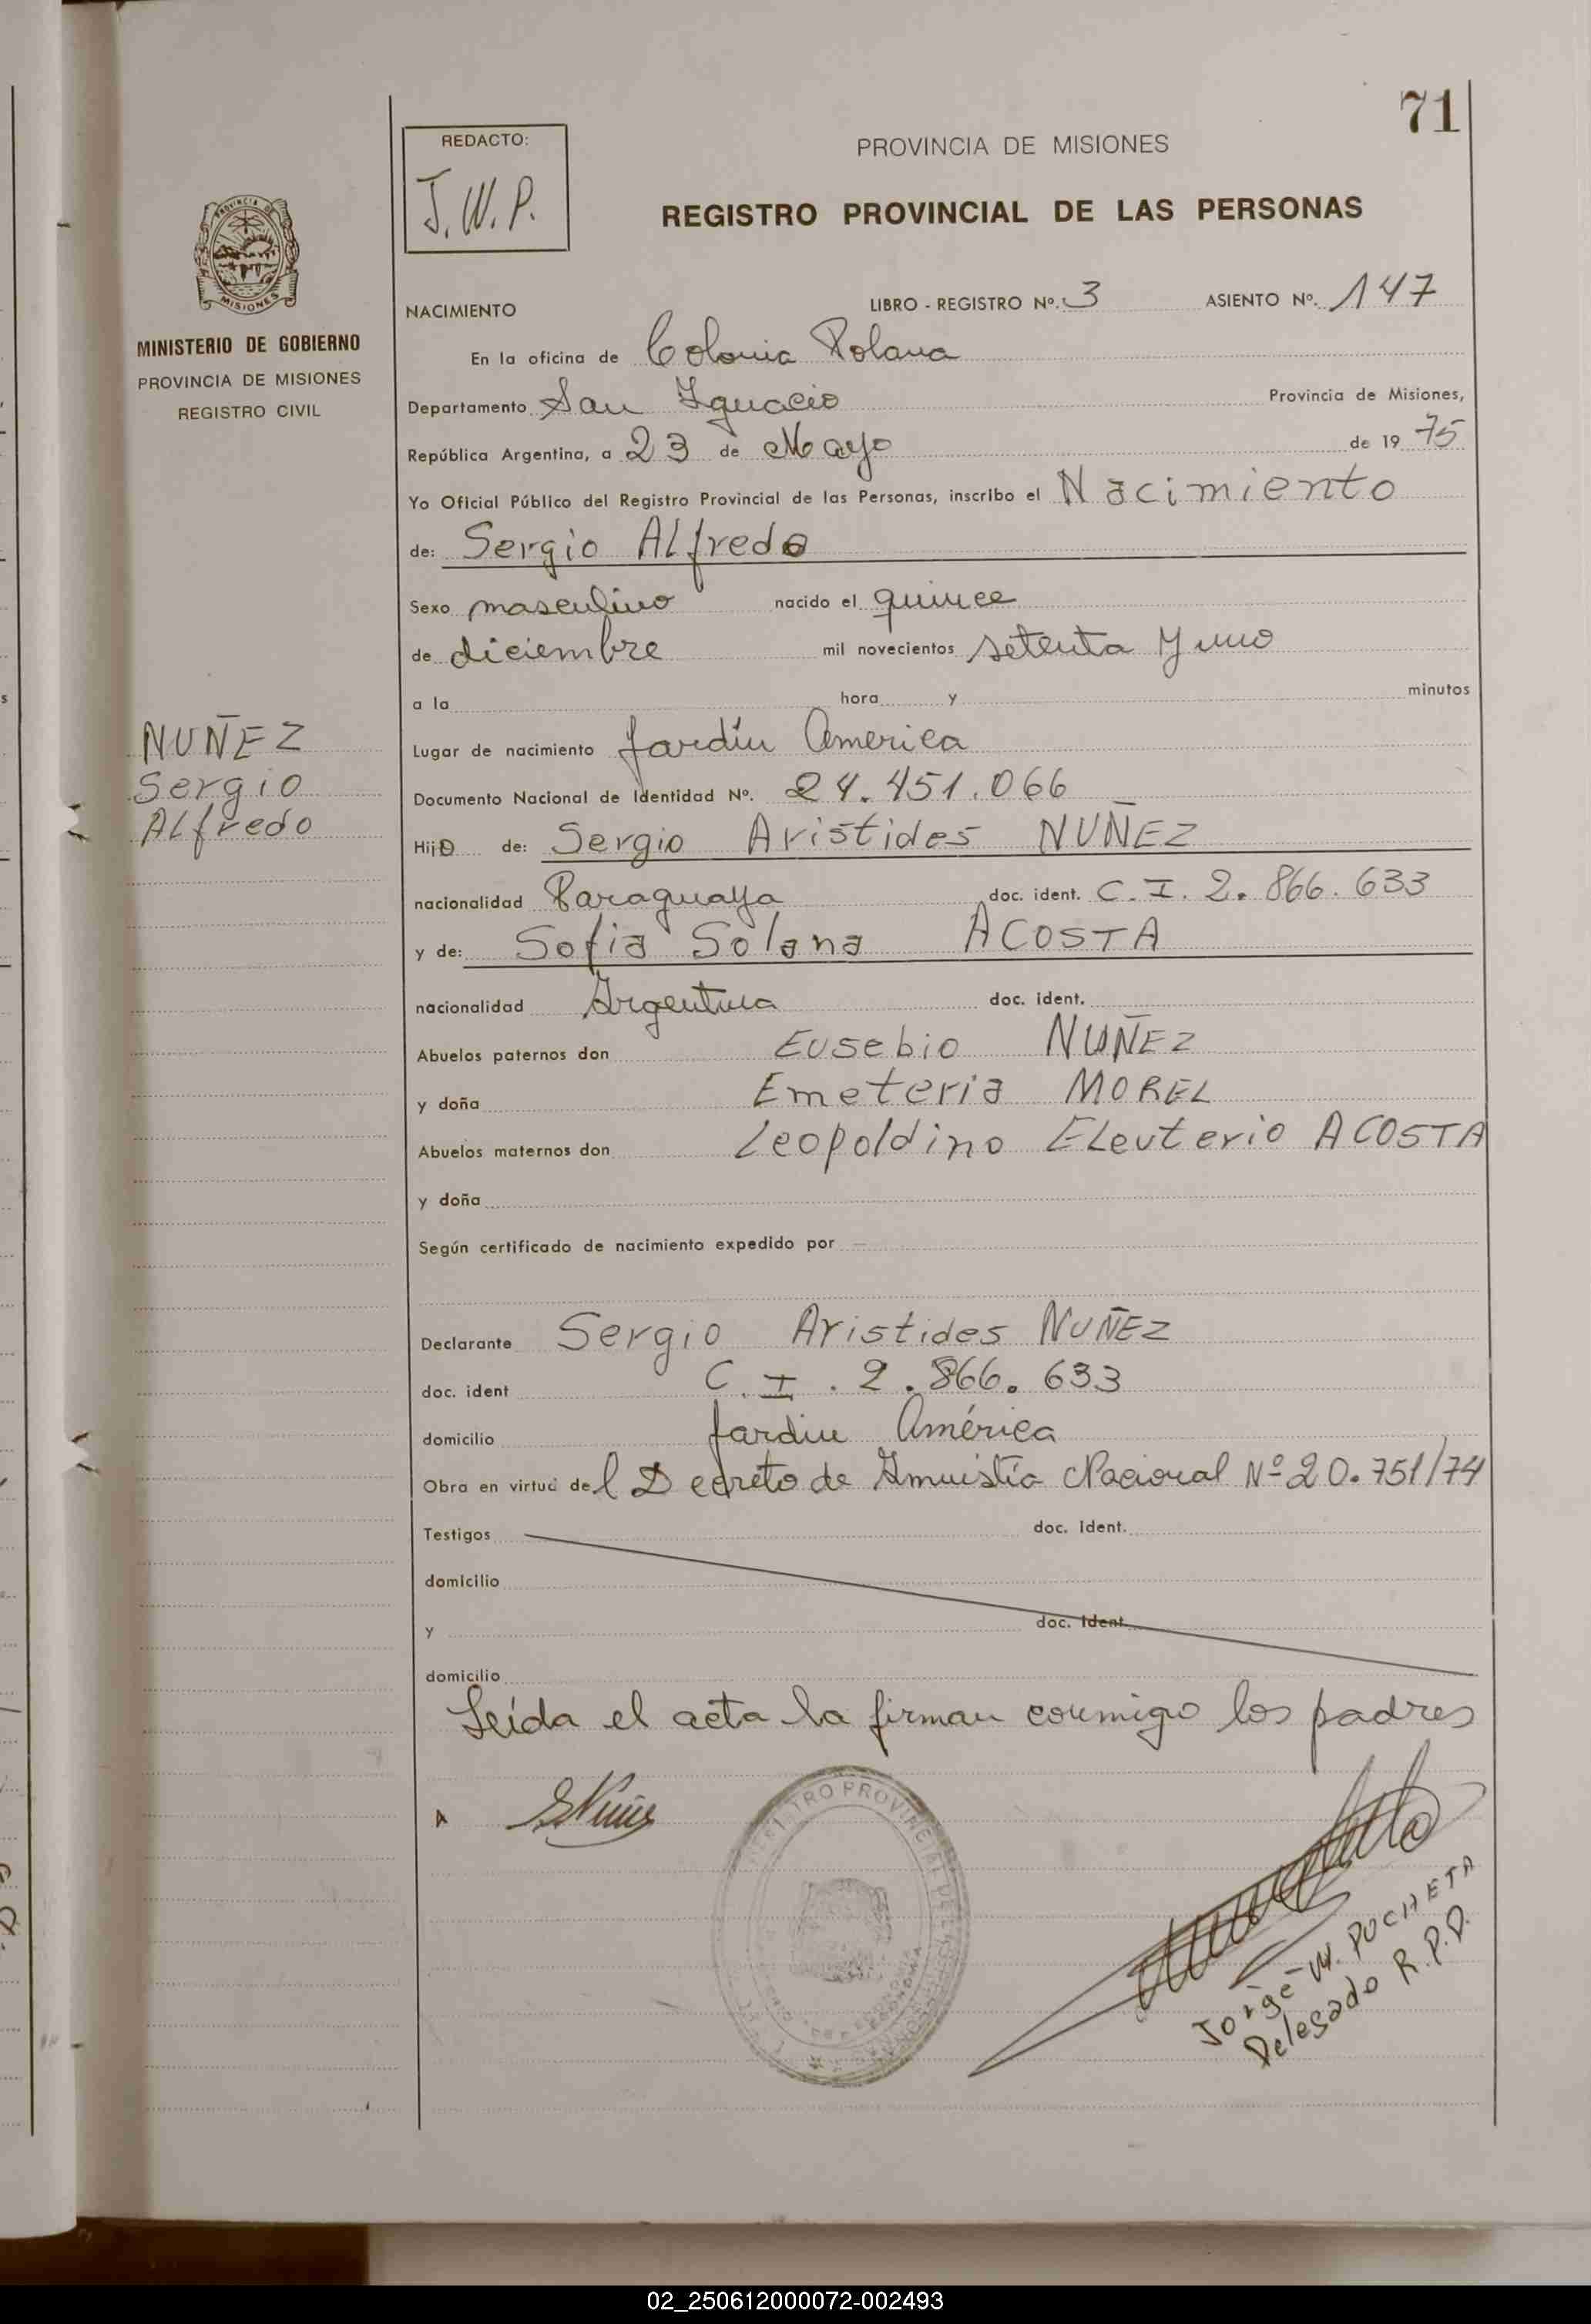 71
REDACTO:
J.W.P.
PROVINCIA DE MISIONES
REGISTRO PROVINCIAL DE LAS PERSONAS
MISIONES
MINISTERIO DE GOBIERNO
PROVINCIA DE MISIONES
REGISTRO CIVIL
NACIMIENTO LIBRO - REGISTRO Nº. 3 ASIENTO Nº. 147
En la oficina de Colonia Polana
Departamento San Ignacio Provincia de Misiones,
República Argentina, a 23 de Mayo de 19 75
Yo Oficial Público del Registro Provincial de las Personas, inscribo el Nacimiento
de: Sergio Alfredo
Sexo masculino nacido el quince
de diciembre mil novecientos setenta y uno
a la hora y minutos
NUÑEZ
Sergio
Alfredo
Lugar de nacimiento Jardín America
Documento Nacional de Identidad Nº. 24.451.066
Hijo de: Sergio Aristides NUÑEZ
nacionalidad Paraguaya doc. ident. C.I. 2.866.633
y de: Sofia Solana ACOSTA
nacionalidad Argentina doc. ident.
Abuelos paternos don Eusebio NUÑEZ
y doña Emeteria MOREL
Abuelos maternos don Leopoldino Eleuterio ACOSTA
y doña
Según certificado de nacimiento expedido por
Declarante Sergio Aristides NUÑEZ
doc. ident C.I. 2.866.633
domicilio Jardin América
Obra en virtud del Decreto de Amnistía Nacional Nº 20.751/74
Testigos doc. Ident.
domicilio
y doc. Ident.
domicilio
Leída el acta la firman conmigo los padres
REGISTRO PROVINCIAL DE LAS PERSONAS
Jorge W. PUCHETA
Delegado R.P.P.
02_250612000072-002493